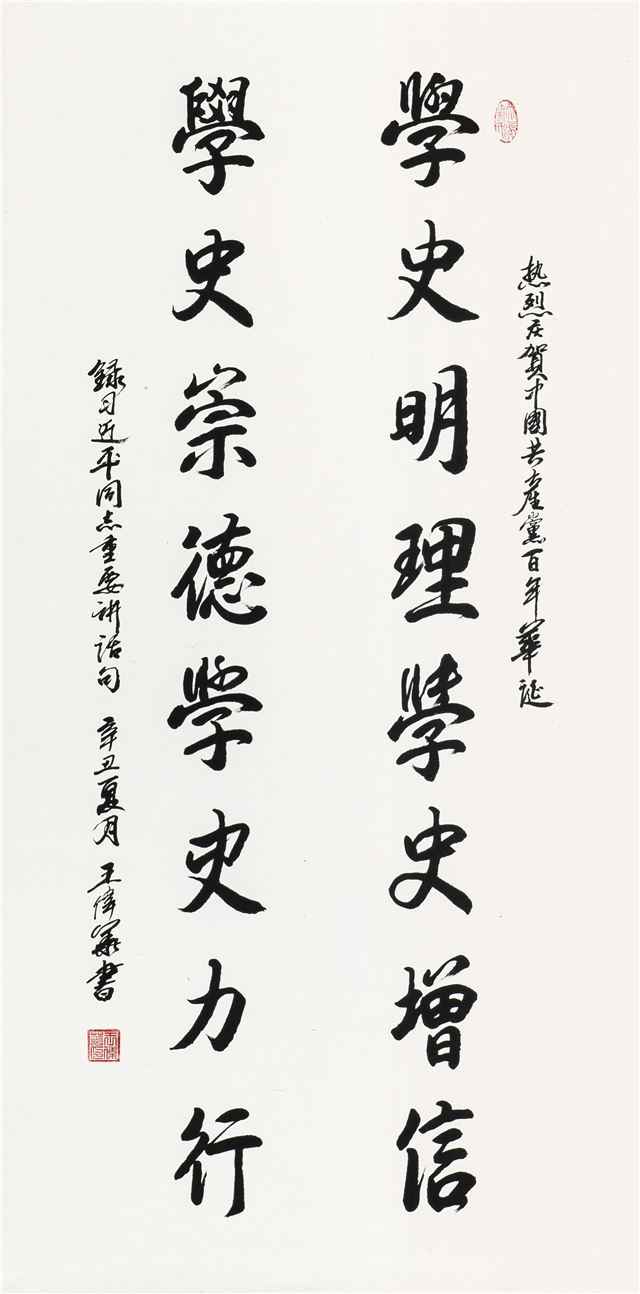 热烈庆贺中國共產黨百年華诞
學史明理學史增信
學史崇德學史力行
録习近平同志重要讲話句 辛丑夏月 王偉華書